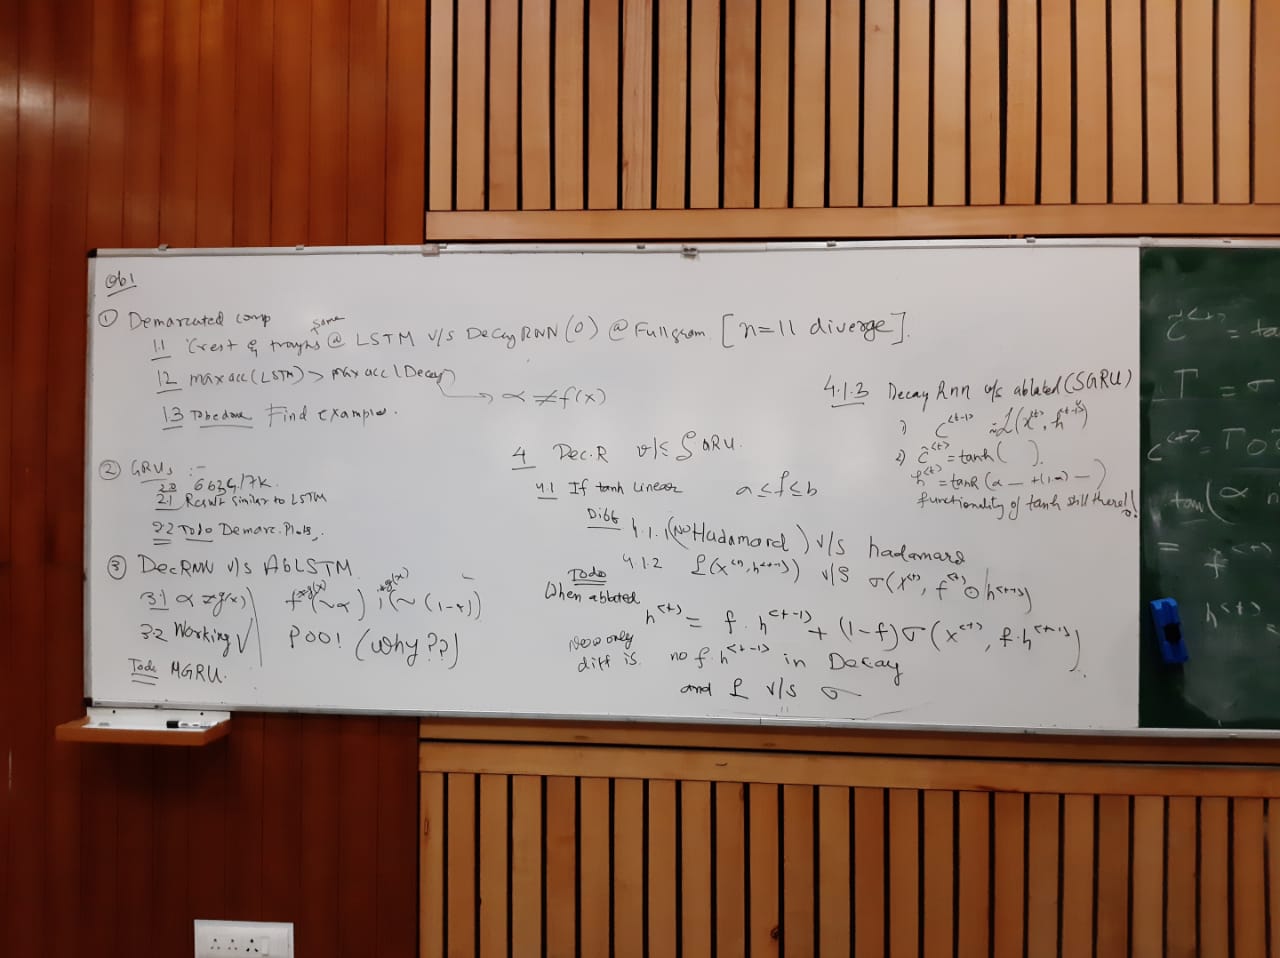 Ob1
① Demarcated comp
1.1 Crest & troughs same @ LSTM v/s DecayRNN(0) @ Fullgram. [n=11 diverge].
1.2 max acc(LSTM) > max acc(Decay)
→ α ≠ f(x)
1.3 To be done Find examples.
② GRUs :-
2.1 Result similar to LSTM
2.2 Todo Demarc. Plots.
③ DecRNN v/s AbLSTM
3.1 α ≠ g(x)
3.2 Working ✓
POO! (why??)
Todo MGRU.
4 Dec.R v/s SGRU.
4.1 If tanh Linear a ≤ f ≤ b
Diff 4.1.1 (No Hadamard) v/s hadamard
4.1.2 L(x<t>, h<t-1>) v/s σ(x<t>, f<t> ⊙ h<t-1>)
Todo
When ablated
h<t> = f. h<t-1> + (1-f) σ(x<t>, f.h<t-1>)
Now only
diff is. no f.h<t-1> in Decay
and L v/s σ
4.1.3 Decay Rnn v/s ablated (SGRU)
1) C<t-1> L(x<t>, h<t-1>)
2) C̃<t> = tanh( ).
functionality of tanh still there!
T = σ
tan( α
= f<t>
h<t>